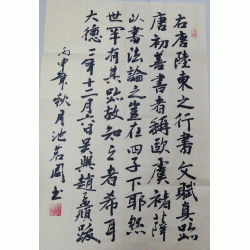 右唐陸柬之行書文賦真跡
唐初善書者稱歐虞褚薛
以書法論之豈在四子下耶然
世罕有其跡故知之者希耳
大德二年十二月六日吳興趙孟頫跋
丙申年秋月池書國书